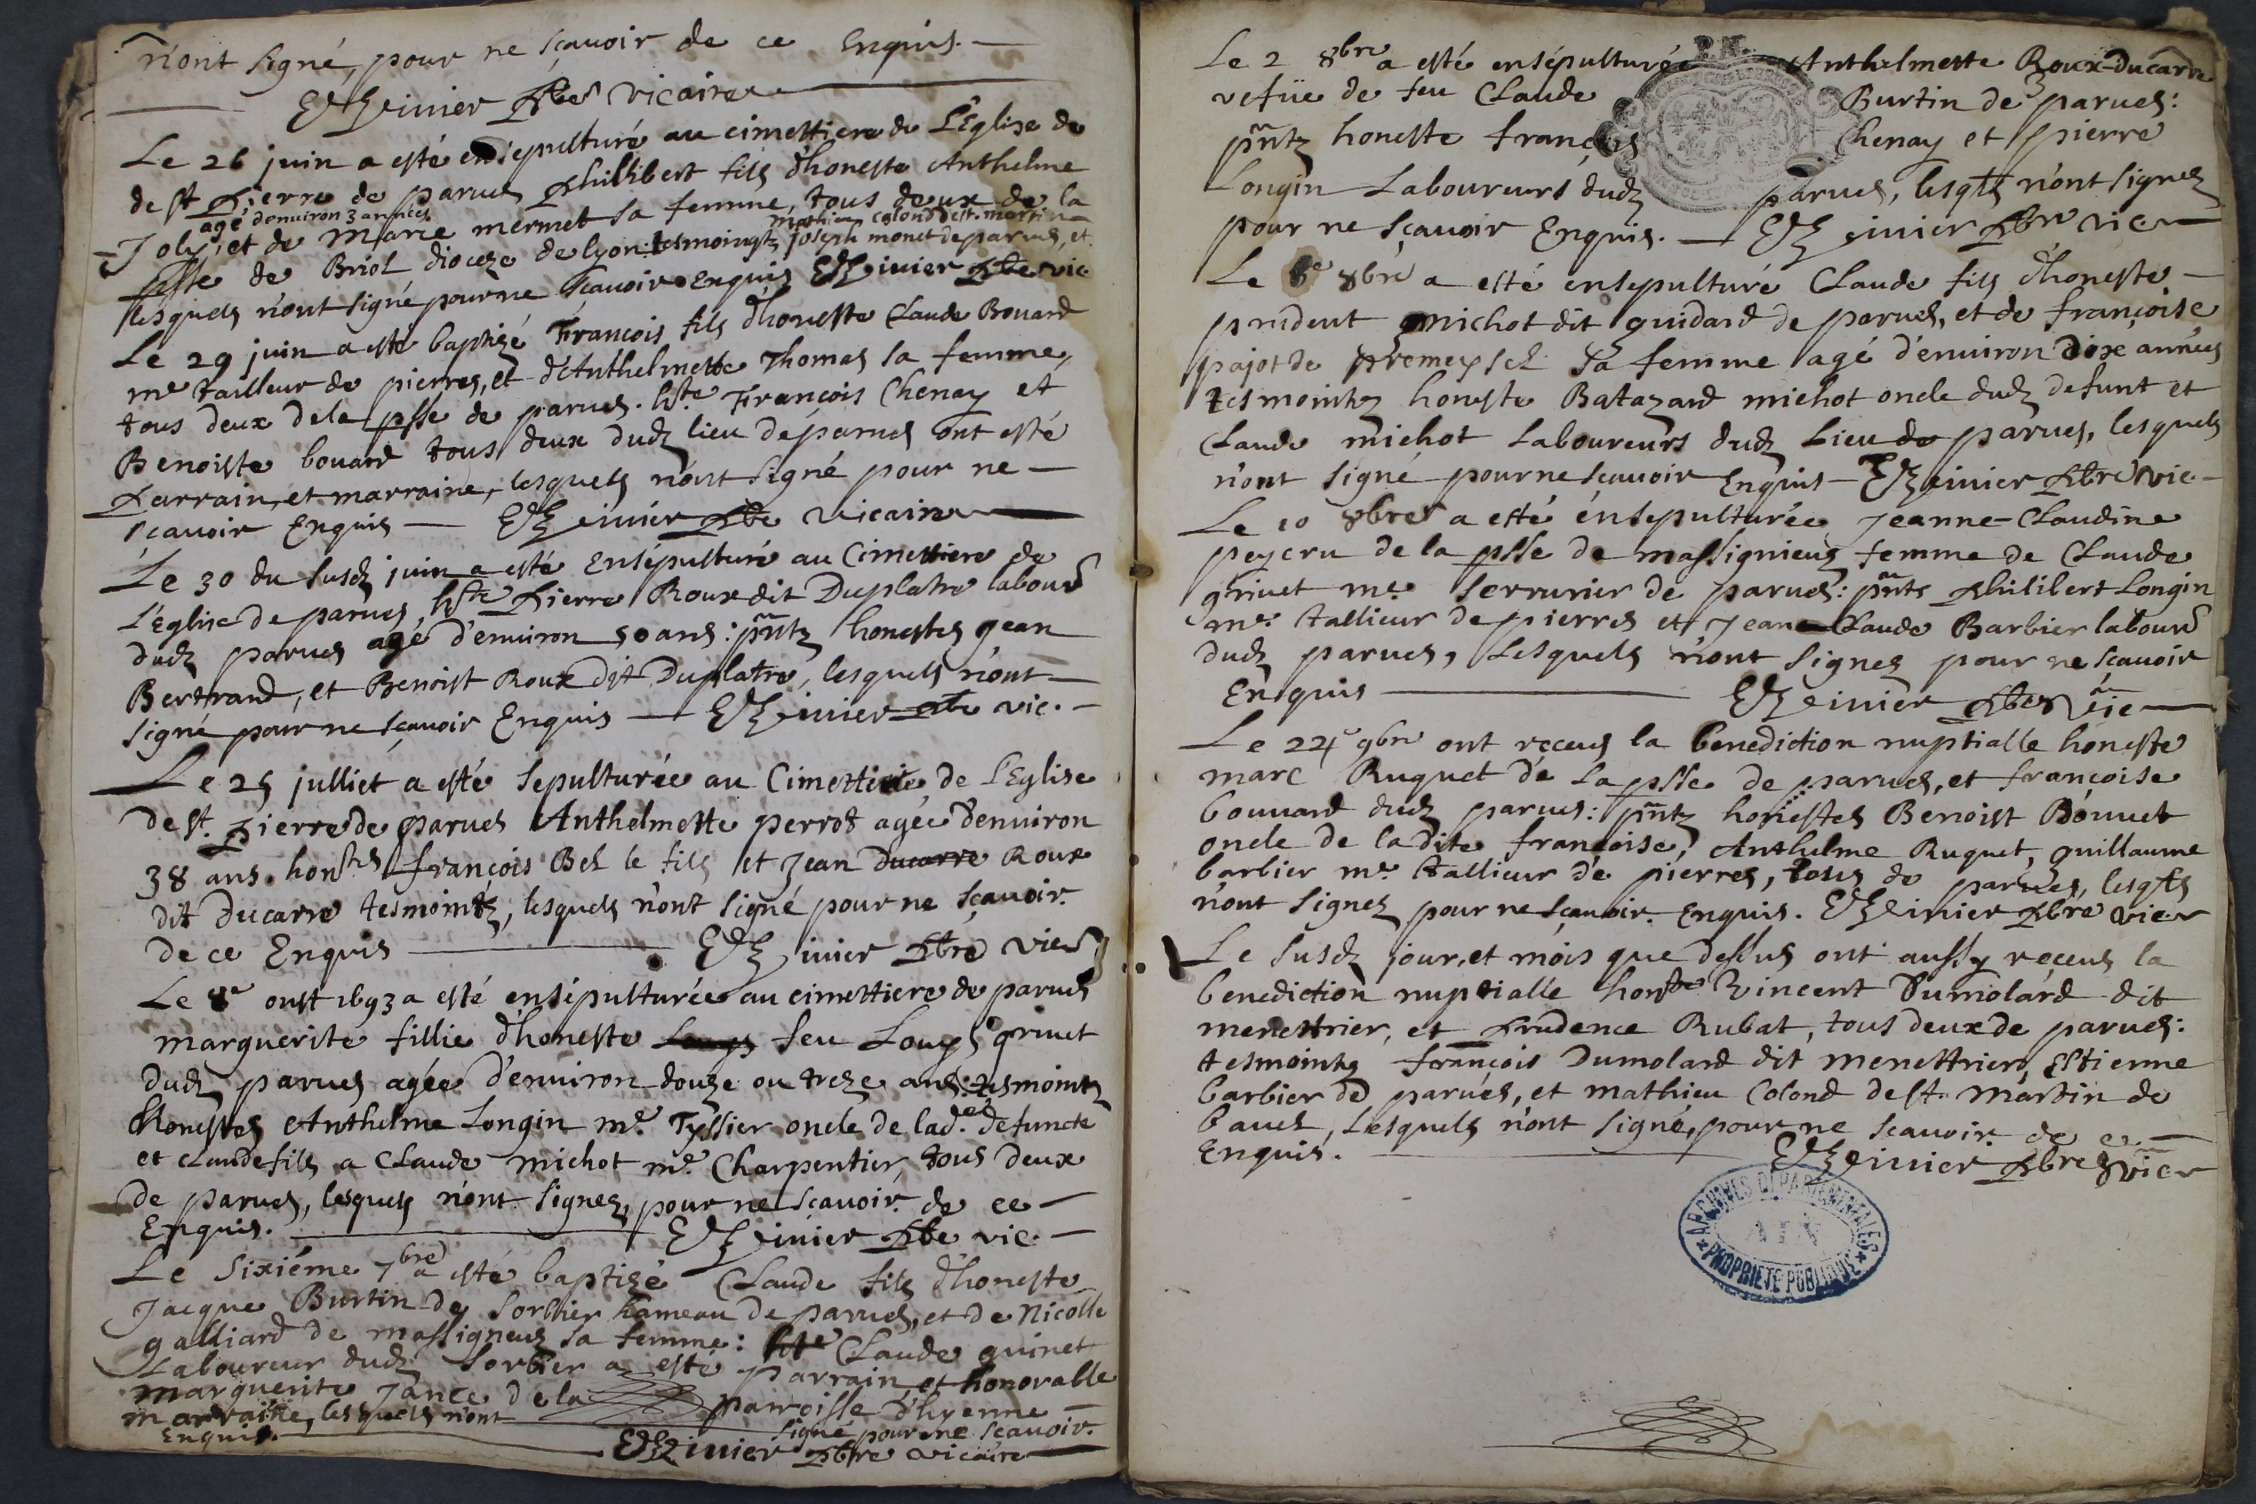 n'ont signé, pour ne sçauoir de ce Enquis.
Vicaire
Le 26 juin a esté ensepulturé au cimettiere de L'Église de
de st pierre de parues philibert fils d'honeste Anthelme
agé d'enuiron 3 années
Joly, et de Marie mermet sa femme, tous deux de la
mathieu colond de st. martin
psse de Briol dioceze de lyon: tesmoingtz joseph monet de parues, et
lesquels n'ont signé pour ne sçauoir Enquis pbre vic
Le 29 juin a esté baptizé François fils d'honeste Claude Bouard
me tailleur de pierres, et d'Anthelmette Thomas sa femme,
tous deux de la psse de parues. hste François Chenay et
Benoiste bouard tous deux dudz lieu de parues ont esté
Parrain, et marraine, lesquels n'ont signé pour ne
sçauoir Enquis pbre Vicaire
Le 30 du susdz juin a esté Ensépulturé au Cimettiere de
l'Eglise de parues, hste Pierre Roux dit Duplatre labour
dudz parues agé d'enuiron 50 ans: pntz honestes jean
Bertrand, et Benoist Roux dit Duplatre, lesquels n'ont
signé pour ne sçauoir Enquis pbre vic.
Le 25 julliet a esté sepulturée au Cimettiere de l'Eglise
de st. Pierre de parues Anthelmette perrod agée d'enuiron
38 ans. honstes françois Bel le fils et Jean Ducarre Roux
dit Ducarre tesmointz, lesquels n'ont signé pour ne sçauoir.
de ce Enquis pbre vic
Le 8e oust 1693 a esté ensépulturée au cimettiere de parues
marguerite fillie d'honeste Louys feu Louys griuet
dudz parues agée d'enuiron douze ou treze ans: tesmointz
honestes Anthelme Longin me. Tyssier oncle de lad. defuncte
et claude fils a Claude michot me. Charpentier, tous deux
de parues, lesquels n'ont signez, pour ne sçauoir. de ce
Enquis. pbre vic.
Le Sixiéme 7bre a esté baptizé Claude fils d'honeste
Jacque Burtin de Sorbier hameau de parues, et de Nicolle
galliard de massigneuz sa femme: hste Claude guinet
Laboureur dudz Sorbier a esté Parrain, et honorable
marguerite Jance de la parroisse d'hyenne
marraine, lesquels n'ont signé pour ne sçauoir.
Enquis. pbre vicaire
Le 2 8bre a esté ensépulturée Anthelmette Roux-Ducarre
vefüe de feu Claude Burtin de parues:
pntz honeste françois Chenay et pierre
Longin Laboureurs dudz parues, lesqls n'ont signez
pour ne sçauoir Enquis. pbre vic
Le 8e 8bre a esté ensepulturé Claude fils d'honeste
prudent michot dit guidard de parues, et de françoise
pajot de premeysel sa femme agé d'enuiron dix années
tesmointz honeste Batazard michot oncle dudz defunt et
Claude michot Laboureurs dudz Lieu de parues, lesquels
n'ont signé pour ne sçauoir Enquis pbre vic.
Le 10 8bre a esté énsepulturée Jeanne Claudine
peyeru de la psse de massignieuz femme de Claude
griuet me. Serrurier de parues: pnts philibert Longin
me. tallieur de pierres et Jean Claude Barbier labour
dudz parues, Lesquels n'ont signez pour ne sçauoir
Enquis pbre vic
Le 24e 9bre ont receus la benediction nuptialle honeste
marc Ruquet de la psse de parues, et françoise
bouuard dudz parues: pntz honestes Benoist Bouuet
oncle de la dite françoise, Anthelme Ruquet, guillaume
barbier me. tallieur de pierres, tous de parues, lesqls
n'ont signez pour ne sçauoir. Enquis. pbre vic
Le susdz jour, et mois que dessus ont aussy receus la
benediction nuptialle honste Vincent Dumolard dit
menettrier, et Prudence Rubat, tous deux de parues:
tesmointz françois Dumolard dit menettrier, Estienne
barbier de parues, et mathieu Colond de st. martin de
bauel, Lesquels n'ont signé, pour ne scauoir. de ce
Enquis. pbre vic
ARCHIVES DÉPARTEMENTALES
AIN
PROPRIÉTÉ PUBLIQUE